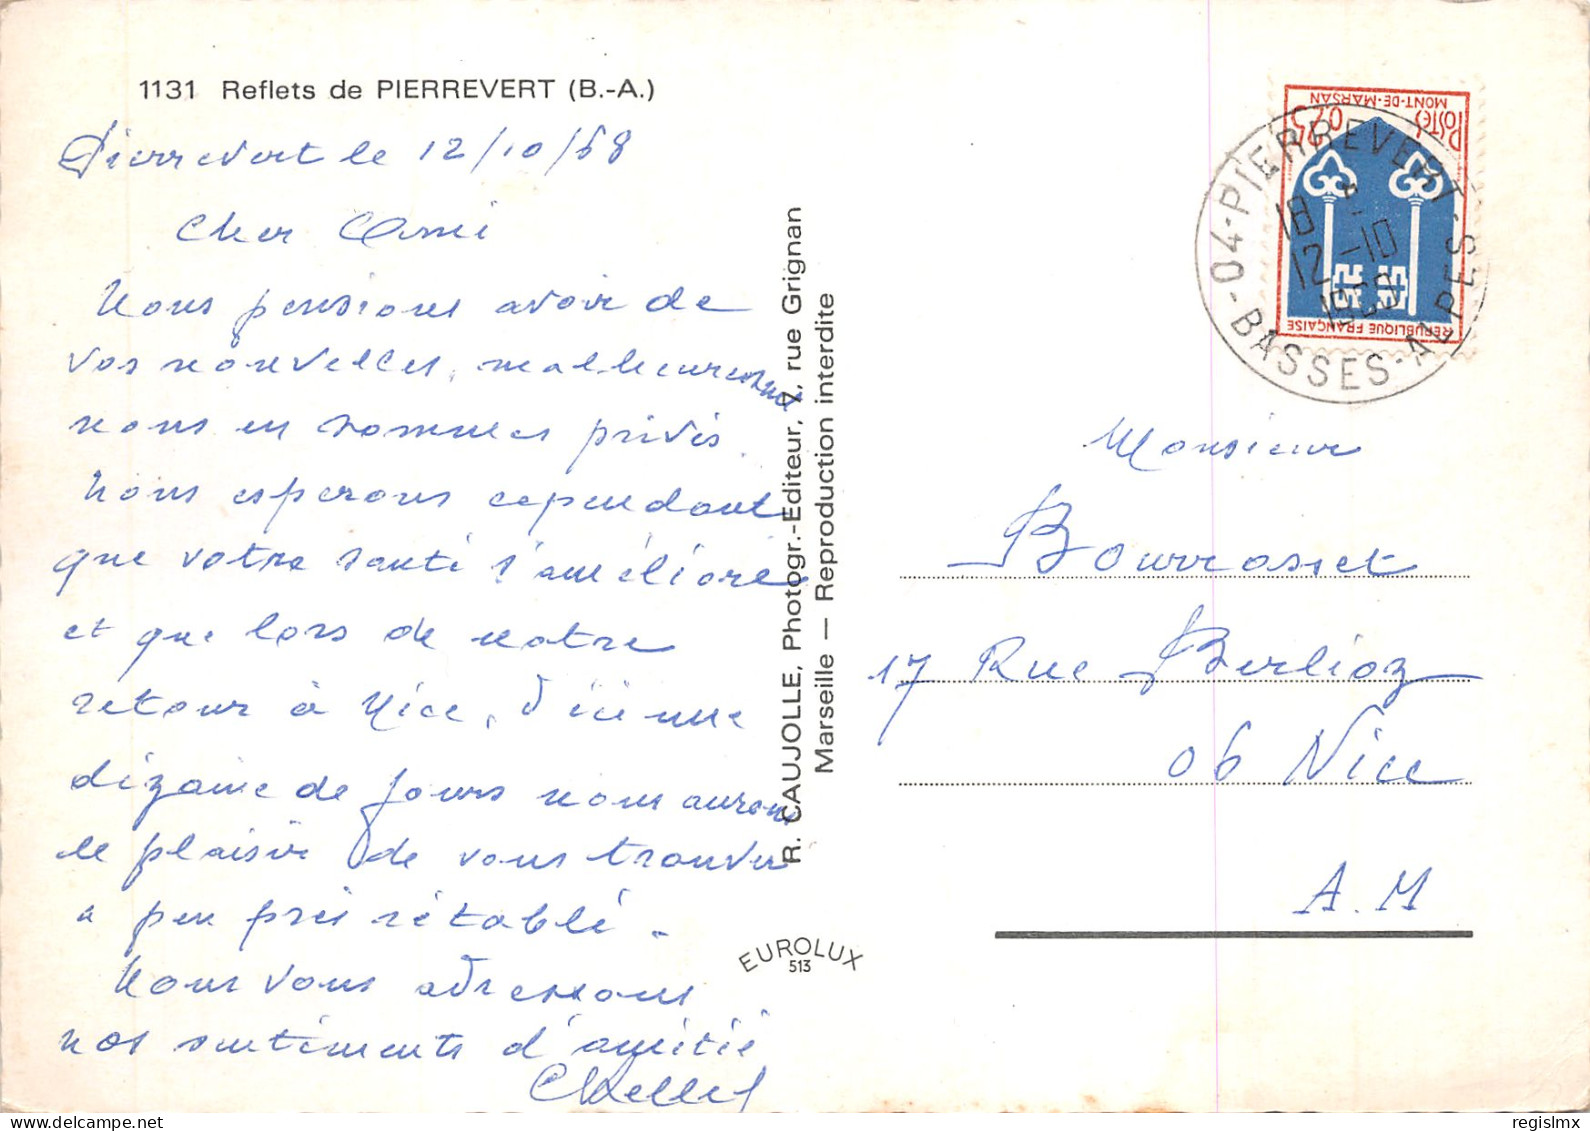 1131 Reflets de PIERREVERT (B.-A.)
Pierrevert le 12/10/68
Cher Ami
Nous pensions avoir de
vos nouvelles, malheureusement
nous en sommes privés.
Nous esperons cependant
que votre santé s'améliore
et que lors de notre
retour à Nice, d'ici une
dizaine de jours nous aurons
le plaisir de vous trouver
a peu près rétabli.
Nous vous adressons
nos sentiments d'amitié
R. CAUJOLLE, Photogr.-Editeur, 7, rue Grignan
Marseille — Reproduction interdite
EUROLUX
513
POSTES
0,25
MONT-DE-MARSAN
REPUBLIQUE FRANÇAISE
04-PIERREVERT-
BASSES-ALPES
18 H
12-10
1968
Monsieur
Bourrosset
17 Rue Berlioz
06 Nice
A.M
regislmx